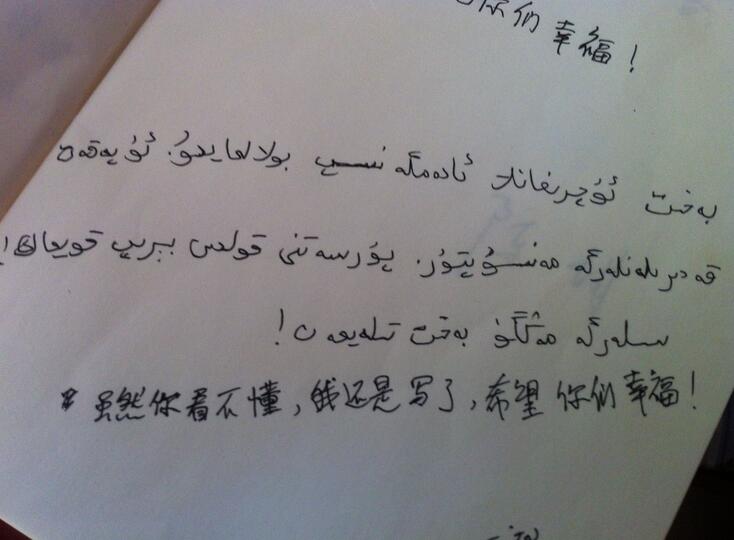 你们幸福!
بەخت ئۇچرىغانلا ئادەمگە نىسىپ بولالمايدۇ. ئۇ پەقەت
قەدىرلەنلەرگە مەنسۇپتۇر. پۇرسەتنى قولدىن بېرىپ قويماڭ!
سىلەرگە مەڭگۈ بەخت تىلەيمەن!
虽然你看不懂,我还是写了,希望你们幸福!